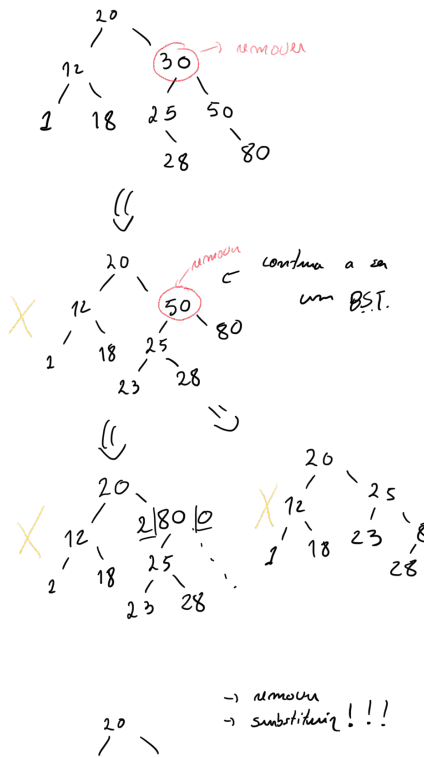 20
30 → remover
12
1 18 25 50
28 80
20
remover
continua a ser
um B.S.T.
X 12 50
80
1 18 25
23 28
20
X 12 2 80 0
1 18 25
23 28
20
X 12 25
1 18 23
28
→ remover
→ substituir!!!
20